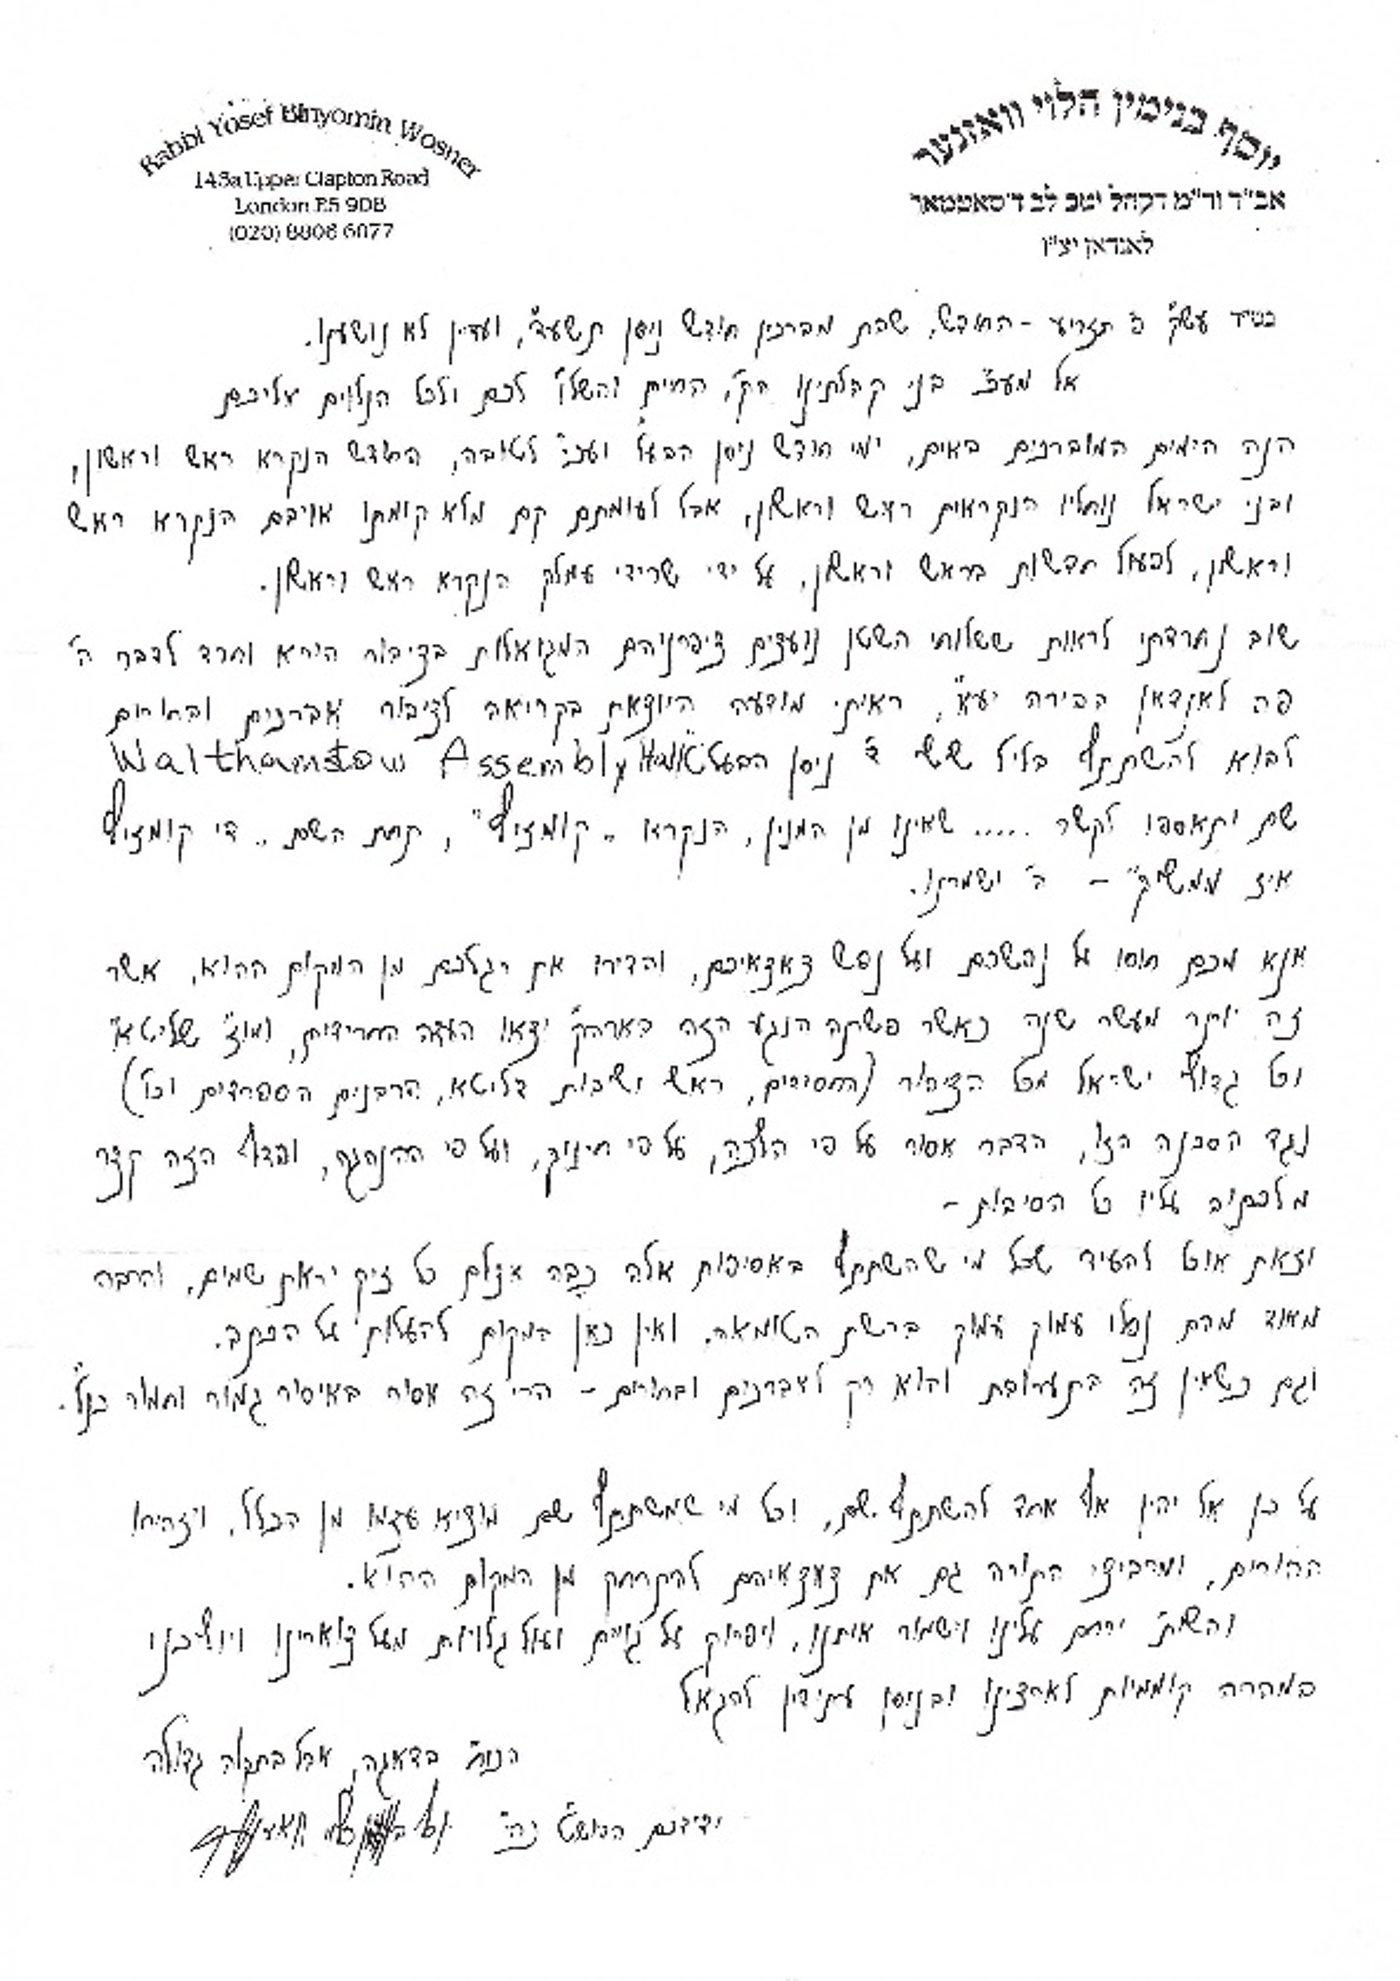 Rabbi Yosef Binyomin Wosner
145a Upper Clapton Road
London E5 9DB
(020) 8806 6077
יוסף בנימין הלוי וואזנער
אב"ד ור"מ דקהל יטב לב ד'סאטמאר
לאנדאן יצ"ו
בס"ד עש"ק פ' תזריע - החודש, שבת מברכין חודש ניסן תשע"ד, ועדיין לא נושענו.
אל מע"כ בני קהלתינו הק', החיים והשלו' לכם ולכל הנלוים אליכם
הנה הימים המוברכים באים, ימי חודש ניסן הבעל"ט ועכ"י לטובה, החודש הנקרא ראש וראשון,
ובני ישראל נוחליו הנקראים ראש וראשון, אבל לעומתם קם מלא קומתו אויבם הנקרא ראש
וראשון, לפעול חדשות בראש וראשון, על ידי שרידי עמלק הנקרא ראש וראשון.
שוב נחרדתי לראות ששלוחי השטן נועצים ציפרניהם המגואלות בציבור הירא וחרד לדבר ה'
פה לאנדאן הבירה יע"א, ראיתי מודעה היוצאת בקריאה לציבור אברכים ובחורים
לבוא להשתתף בליל ששי ד' ניסן הבעל"ט Walthamstow Assembly Hall
שם יתאספו לקשר ..... שאינו מן המנין, הנקרא "קומזיץ", תחת השם "די קומזיץ
איז ממשיך" - ה' ישמרנו.
אנא מכם חוסו על נפשכם ועל נפש צאצאיכם, והדירו את רגלכם מן המקום ההוא, אשר
זה יותר מעשר שנה כאשר פשתה הנגע הזה בארה"ק יצאו העדה החרידית, ומו"צ שליט"א
וכל גדולי ישראל מכל הציבור (החסידים, ראשי ישיבות דליטא, הרבנים הספרדים וכו')
נגד הסכנה הזו, הדבר אסור על פי הלכה, על פי חינוך, ועל פי ההנהגה, והדף הזה קצר
מלכתוב עליו כל הסיבות -
וזאת אוכל להעיד שכל מי שהשתתף באסיפות אלה כבה אצלם כל זיק יראת שמים, והרבה
מאוד מהם נפלו עמוק עמוק ברשת הטומאה. ואין כאן המקום להעלות על הכתב.
וגם כשאין זה בתערובת והוא רק לאברכים ובחורים - הרי זה אסור באיסור גמור וחמור כנ"ל.
על כן אל יהין אף אחד להשתתף שם, וכל מי שמשתתף שם מוציא עצמו מן הכלל. ויזהירו
ההורים, ומרביצי התורה גם את צאצאיהם להתרחק מן המקום ההוא.
והשי"ת ירחם עלינו וישמור אותנו, ויפרוק עול גויים ועול גלויות מעל צוארינו ויוליכנו
במהרה קוממיות לארצינו ובניסן עתידין להגאל
הכו"ח בדאגה, אבל בתקוה גדולה
ידידכם הכושל"ט כה"י